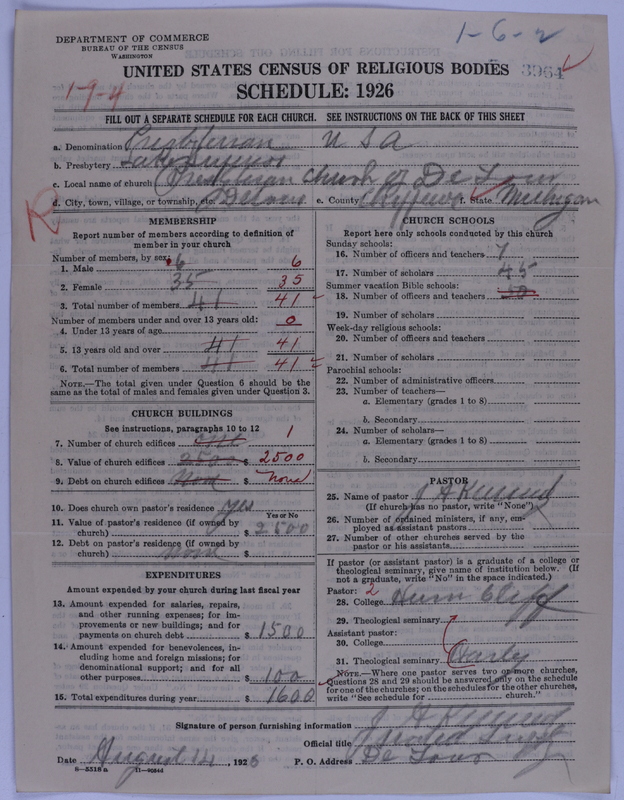 1-6-2
DEPARTMENT OF COMMERCE
BUREAU OF THE CENSUS
WASHINGTON
UNITED STATES CENSUS OF RELIGIOUS BODIES 3964
1-9-4
SCHEDULE: 1926
FILL OUT A SEPARATE SCHEDULE FOR EACH CHURCH. SEE INSTRUCTIONS ON THE BACK OF THIS SHEET
a. Denomination Presbyterian U S A
b. Presbytery Lake Superior
c. Local name of church Presbyterian Church of De Tour
d. City, town, village, or township, etc. Detour e. County Chippewa f. State Michigan
MEMBERSHIP
Report number of members according to definition of
member in your church
Number of members, by sex:
1. Male 6 6
2. Female 35 35
3. Total number of members 41 41
Number of members under and over 13 years old:
4. Under 13 years of age 0
5. 13 years old and over 41 41
6. Total number of members 41 41
NOTE.—The total given under Question 6 should be the
same as the total of males and females given under Question 3.
CHURCH BUILDINGS
See instructions, paragraphs 10 to 12
7. Number of church edifices one 1
8. Value of church edifices 2500 $ 2500
9. Debt on church edifices None $ None
10. Does church own pastor's residence yes
Yes or No
11. Value of pastor's residence (if owned by
church) $ 2500
12. Debt on pastor's residence (if owned by
church) None $
EXPENDITURES
Amount expended by your church during last fiscal year
13. Amount expended for salaries, repairs,
and other running expenses; for im-
provements or new buildings; and for
payments on church debt $ 1500
14. Amount expended for benevolences, in-
cluding home and foreign missions; for
denominational support; and for all
other purposes $ 100
15. Total expenditures during year $ 1600
CHURCH SCHOOLS
Report here only schools conducted by this church
Sunday schools:
16. Number of officers and teachers 7
17. Number of scholars 45
Summer vacation Bible schools:
18. Number of officers and teachers
19. Number of scholars
Week-day religious schools:
20. Number of officers and teachers
21. Number of scholars
Parochial schools:
22. Number of administrative officers
23. Number of teachers—
a. Elementary (grades 1 to 8)
b. Secondary
24. Number of scholars—
a. Elementary (grades 1 to 8)
b. Secondary
PASTOR
25. Name of pastor
(If church has no pastor, write "None")
26. Number of ordained ministers, if any, em-
ployed as assistant pastors
27. Number of other churches served by the
pastor or his assistants
If pastor (or assistant pastor) is a graduate of a college or
theological seminary, give name of institution below. (If
not a graduate, write "No" in the space indicated.)
Pastor: 2
28. College
29. Theological seminary
Assistant pastor:
30. College
31. Theological seminary
NOTE.—Where one pastor serves two or more churches,
Questions 28 and 29 should be answered only on the schedule
for one of the churches; on the schedules for the other churches,
write "See schedule for church."
Signature of person furnishing information
Official title
Date August 14, 1926 P. O. Address De Tour
8—5518 a